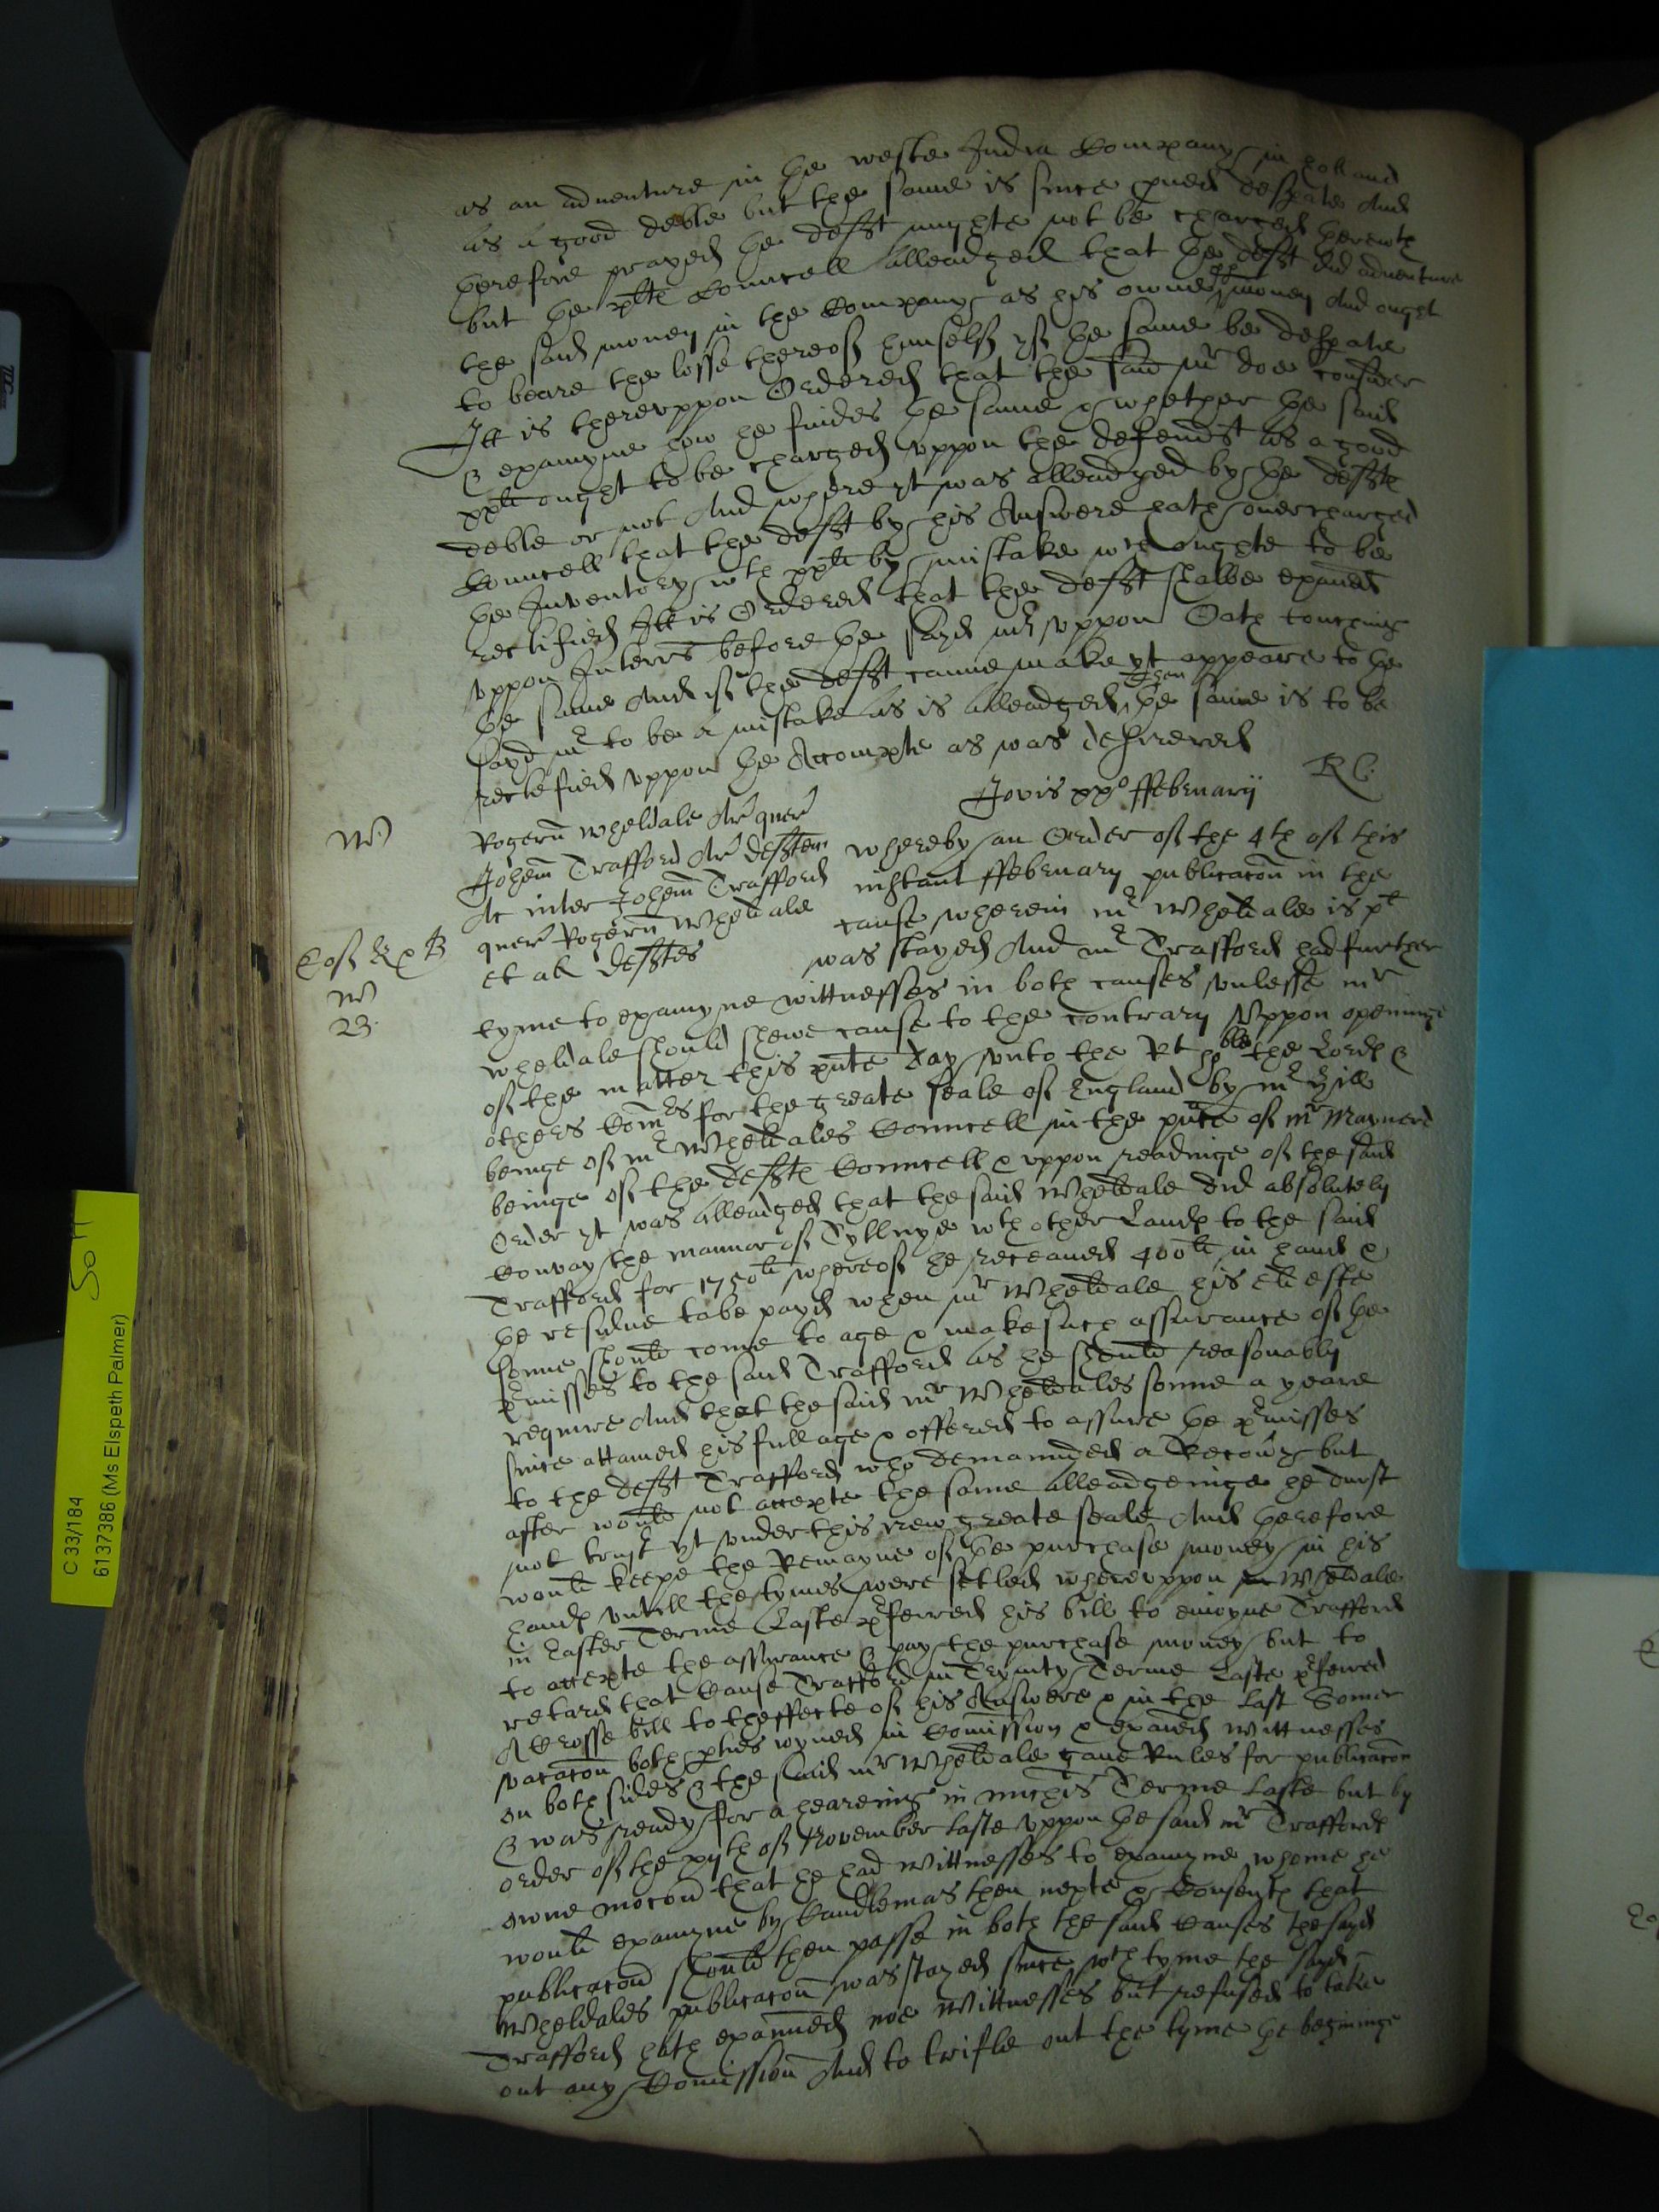 as an adventure in the weste India Company in holland
as a good debte but the same is since proved desperate And
therefore prayed the deft mighte not be charged therewth
but the plts Councell alleadged that the deft did adventure
the said money in the Company as his owne money And ought
to beare the losse thereof himself yf the same be desperate
Itt is thereuppon Ordered that the said Mr doe consider
& examyne how he findes the same & whether the said
ought to be charged uppon the defendt as a good
debte or not And where yt was alleadged by the defts
Councell that the deft by his Answere hath overcharged
the Inventory wth by mistake wch oughte to be
rectified Itt is Ordered that the deft shalbe examed
uppon Interrs before the sayd Mr uppon Oath touching
the same And if the deft canne make yt appeare to the
sayd Mr to be a mistake as is alleadged then the same is to be
rectefied uppon the Accompte as was desiered
R C
Jovis xxo ffebruarij
W
Rogerũ Wheldale Ar quer
Johem Trafford Ar deften
Ac inter Johem Trafford
quer Rogerũ Wheldale
et al deftes
whereby an Order of the 4th of this
instant ffebruary publicacon in the
cause wherein Mr Wheldale is plt
was stayed And Mr Trafford had further
W
23.
tyme to examyne wittnesses in both causes unlesse Mr
Wheldale should shewe cause to the contrary Uppon openinge
of the matter this pnte day unto the Rt hoble the Lords
others Comrs for the greate seale of England by Mr Hill
beinge of Mr Wheldales Councell in the pnce of Mr Maynerd
beinge of the defts Councell & uppon readinge of the said
Order yt was alleadged that the said Wheldale did absolutely
Convay the mannor of Tyllnye wth other Lands to the said
Trafford for 1750li whereof he receaved 400li in hand &
the residue to be payd when Mr Wheldale his eldeste
sonne should come to age & make such assurance of the
pmisses to the said Trafford as he should reasonably
require And that the said Mr Wheldales sonne a yeare
since attained his full age & offered to assure the pmisses
to the deft Trafford who demannded a Recovy but
after would not accepte the same alleadgeinge he durst
not trust yt under this new greate seale And therefore
would keepe the Remayne of the purchase money in his
hands untill the tymes were setled whereuppon Wheldale
in Easter Terme Laste pferred his bill to enioyne Trafford
to accepte the assurance & pay the purchase money but to
retard that Cause Trafford in Trynity Terme Laste pferred
A Crosse bill to theffecte of his Answere & in the last Somer
vacacon both pties ioyned in Comission & examed wittnesses
on both sides & the said Mr Wheldale gave Rules for publicacon
& was ready for a heareing in Michis Terme laste but by
order of the xijth of November laste uppon the said Mr Traffords
owne mocon that he had wittnesses to examyne whome he
would examyne by Candlemas then nexte & Consents that
publicacon should then passe in both the said Causes the sayd
Wheldales publicacon was stayed since wch tyme the sayd
Trafford hath examined noe wittnesses but refused to take
out any Comission And to trifle out the tyme he beginninge
C 33/184
61137386 (Ms Elspeth Palmer)